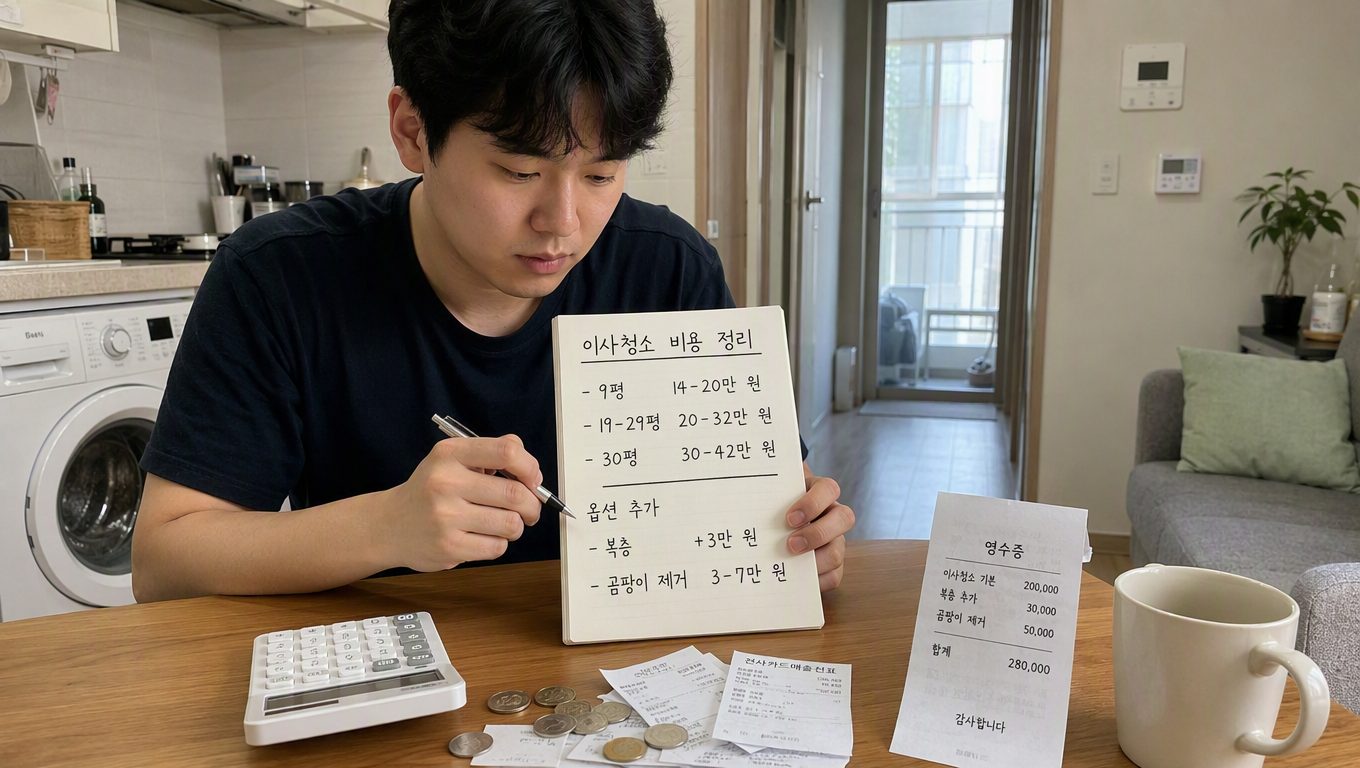 이사청소 비용 정리
- 9평 14-20만 원
- 19-29평 20-32만 원
- 30평 30-42만 원
옵션 추가
- 복층 +3만 원
- 곰팡이 제거 3-7만 원
영수증
이사청소 기본 200,000
복층 추가 30,000
곰팡이 제거 50,000
합계 280,000
감사합니다